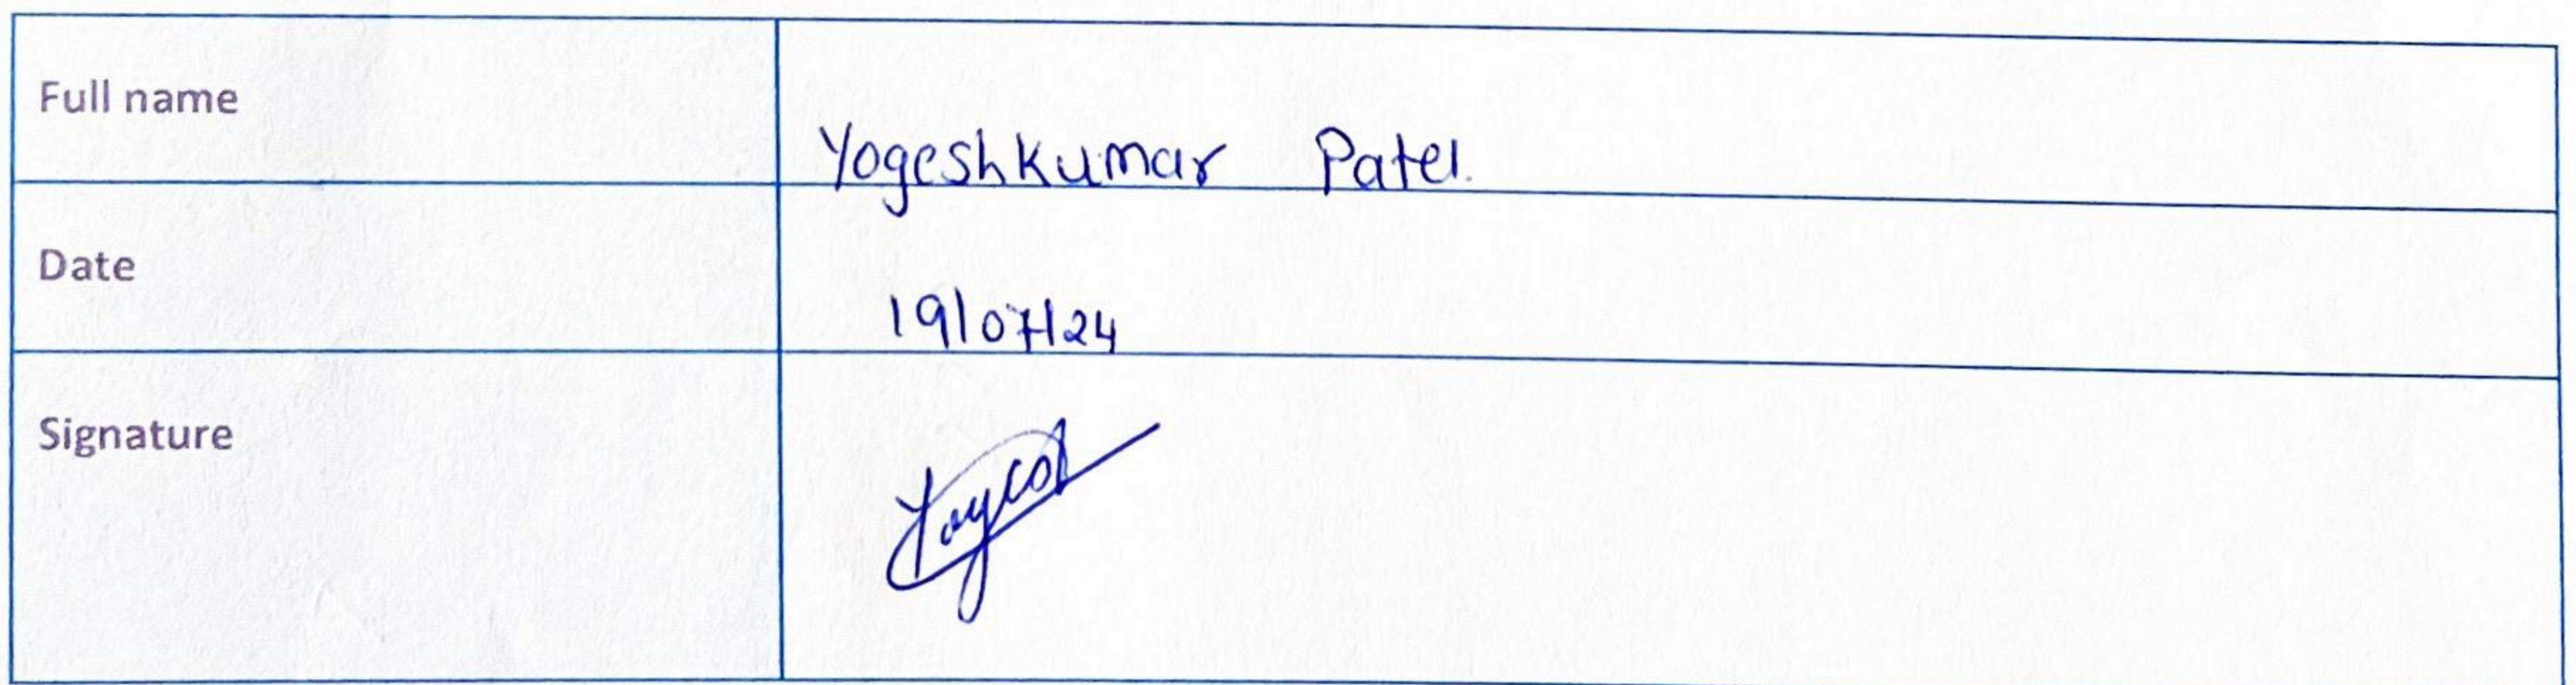 Full name
Yogeshkumar Patel.
Date
19/07/24
Signature